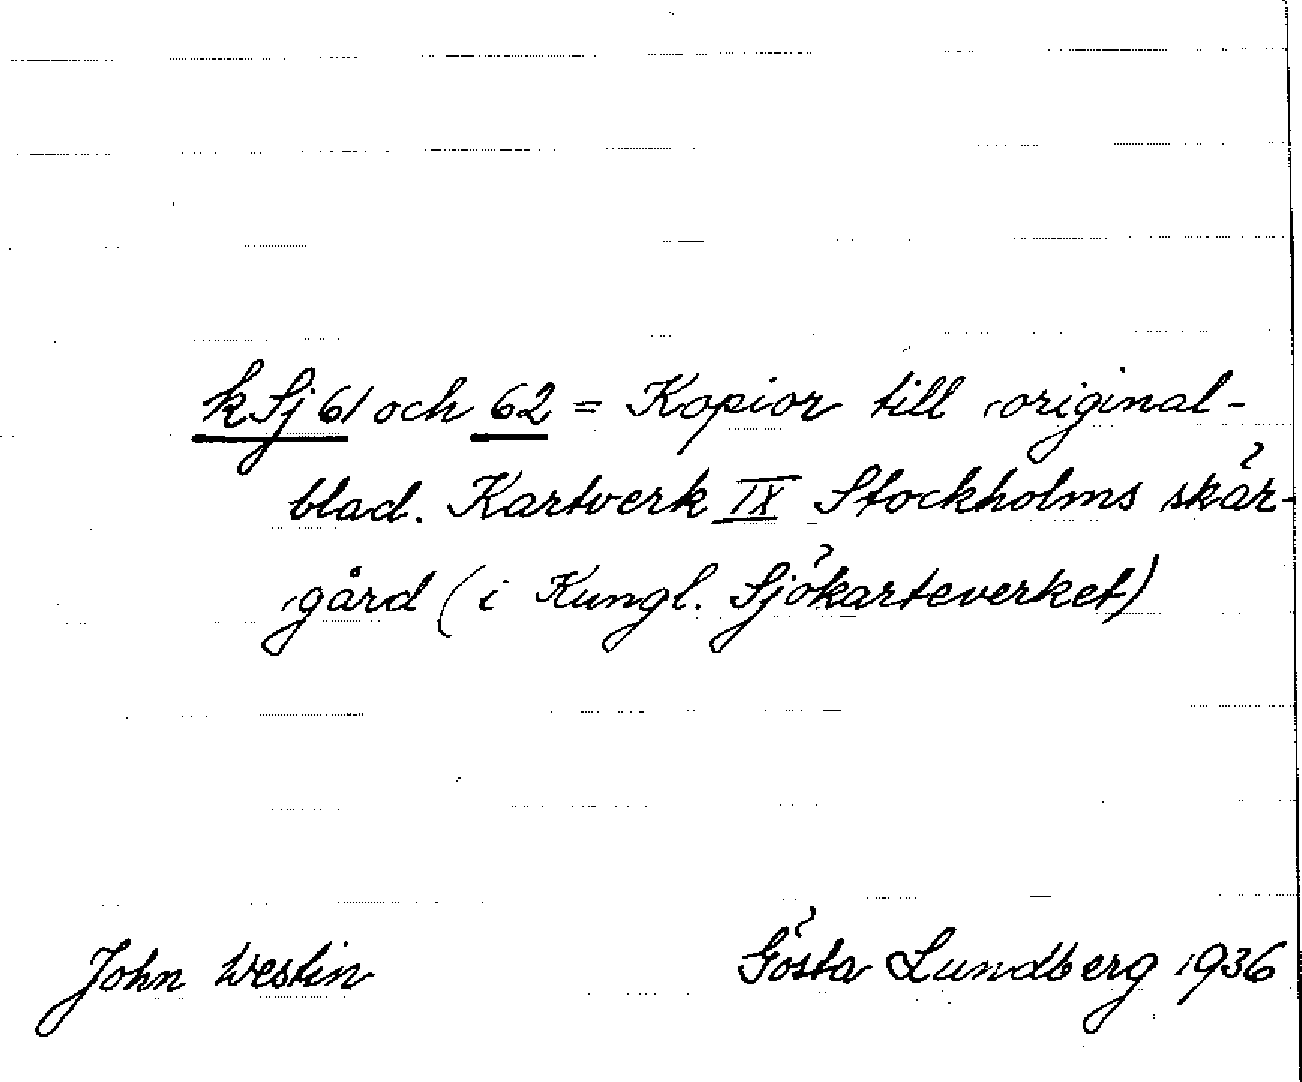 kSj 61 och 62 = Kopior till original-
blad. Kartverk IX Stockholms skär-
gård (i Kungl. Sjökarteverket)
John Westin Gösta Lundberg 1936